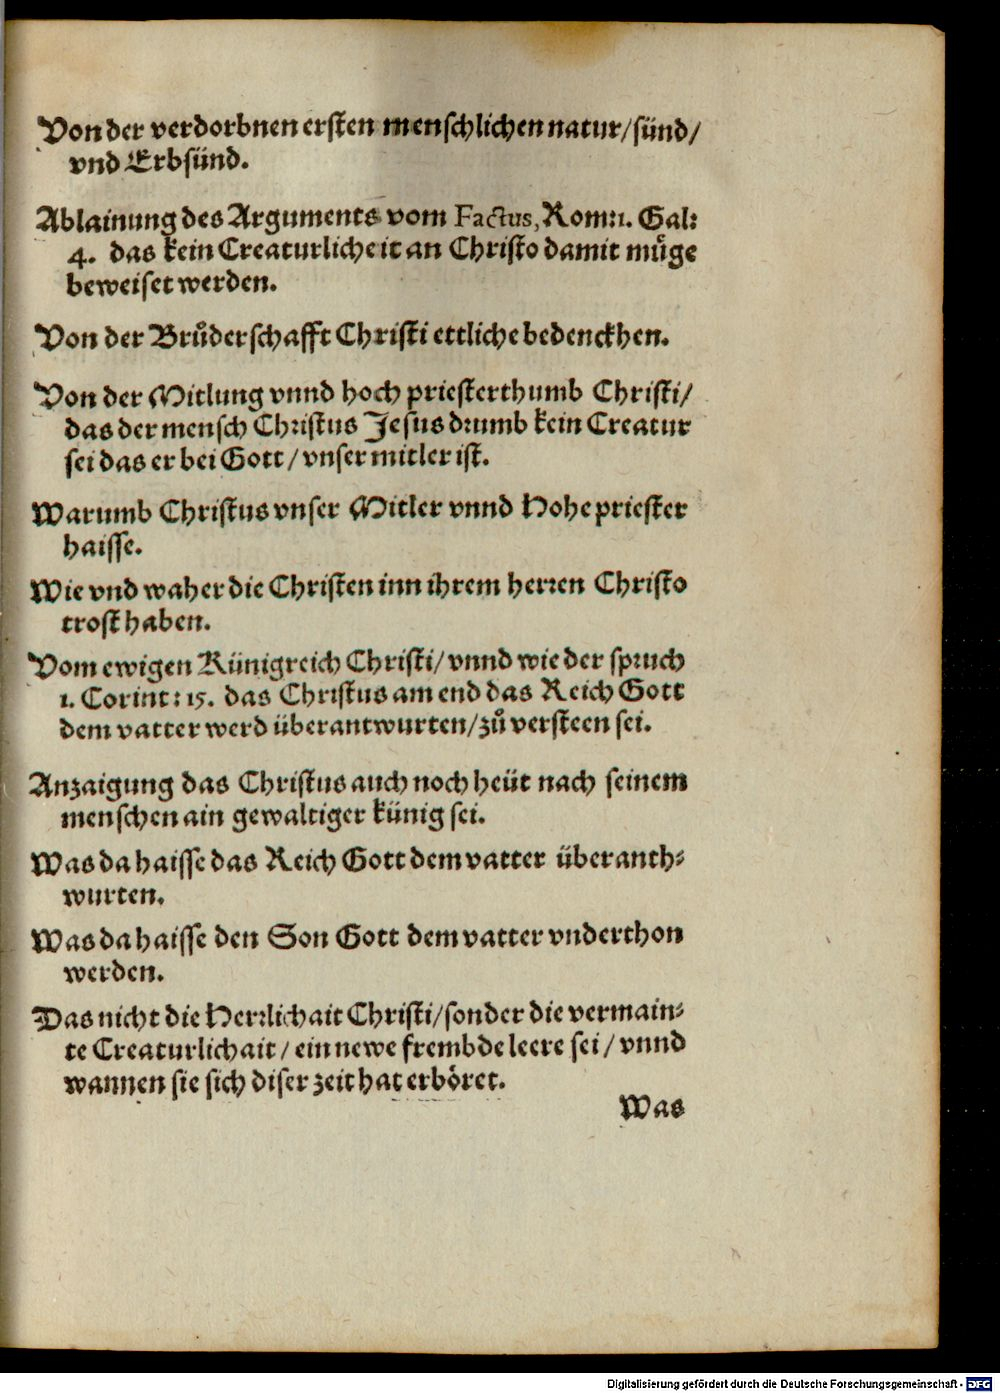 Von der verdorbnen ersten menschlichen natur/sünd/
vnd Erbsünd.
Ablainung des Arguments vom Factus, Rom:1. Gal:
4. das kein Creaturlicheit an Christo damit müge
beweiset werden.
Von der Brůderschafft Christi ettliche bedenckhen.
Von der Mitlung vnnd hoch priesterthumb Christi/
das der mensch Christus Jesus drumb kein Creatur
sei das er bei Gott/vnser mitler ist.
Warumb Christus vnser Mitler vnnd Hohe priester
haisse.
Wie vnd waher die Christen inn ihrem herren Christo
trost haben.
Vom ewigen Künigreich Christi/vnnd wie der spruch
1. Corint: 15. das Christus am end das Reich Gott
dem vatter werd überantwurten/zů versteen sei.
Anzaigung das Christus auch noch heüt nach seinem
menschen ain gewaltiger künig sei.
Was da haisse das Reich Gott dem vatter überanth⸗
wurten.
Was da haisse den Son Gott dem vatter vnderthon
werden.
Das nicht die Herrlichait Christi/sonder die vermain⸗
te Creaturlichait/ein newe frembde leere sei/vnnd
wannen sie sich diser zeit hat erböret.
Was
Digitalisierung gefördert durch die Deutsche Forschungsgemeinschaft - DFG